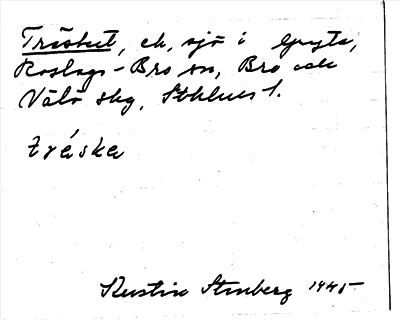 Träsket, ek, sjö i Gryta,
Roslags-Bro sn, Bro och
Väto skg, Sthlms l.
träska
Kerstin Stenberg 1945